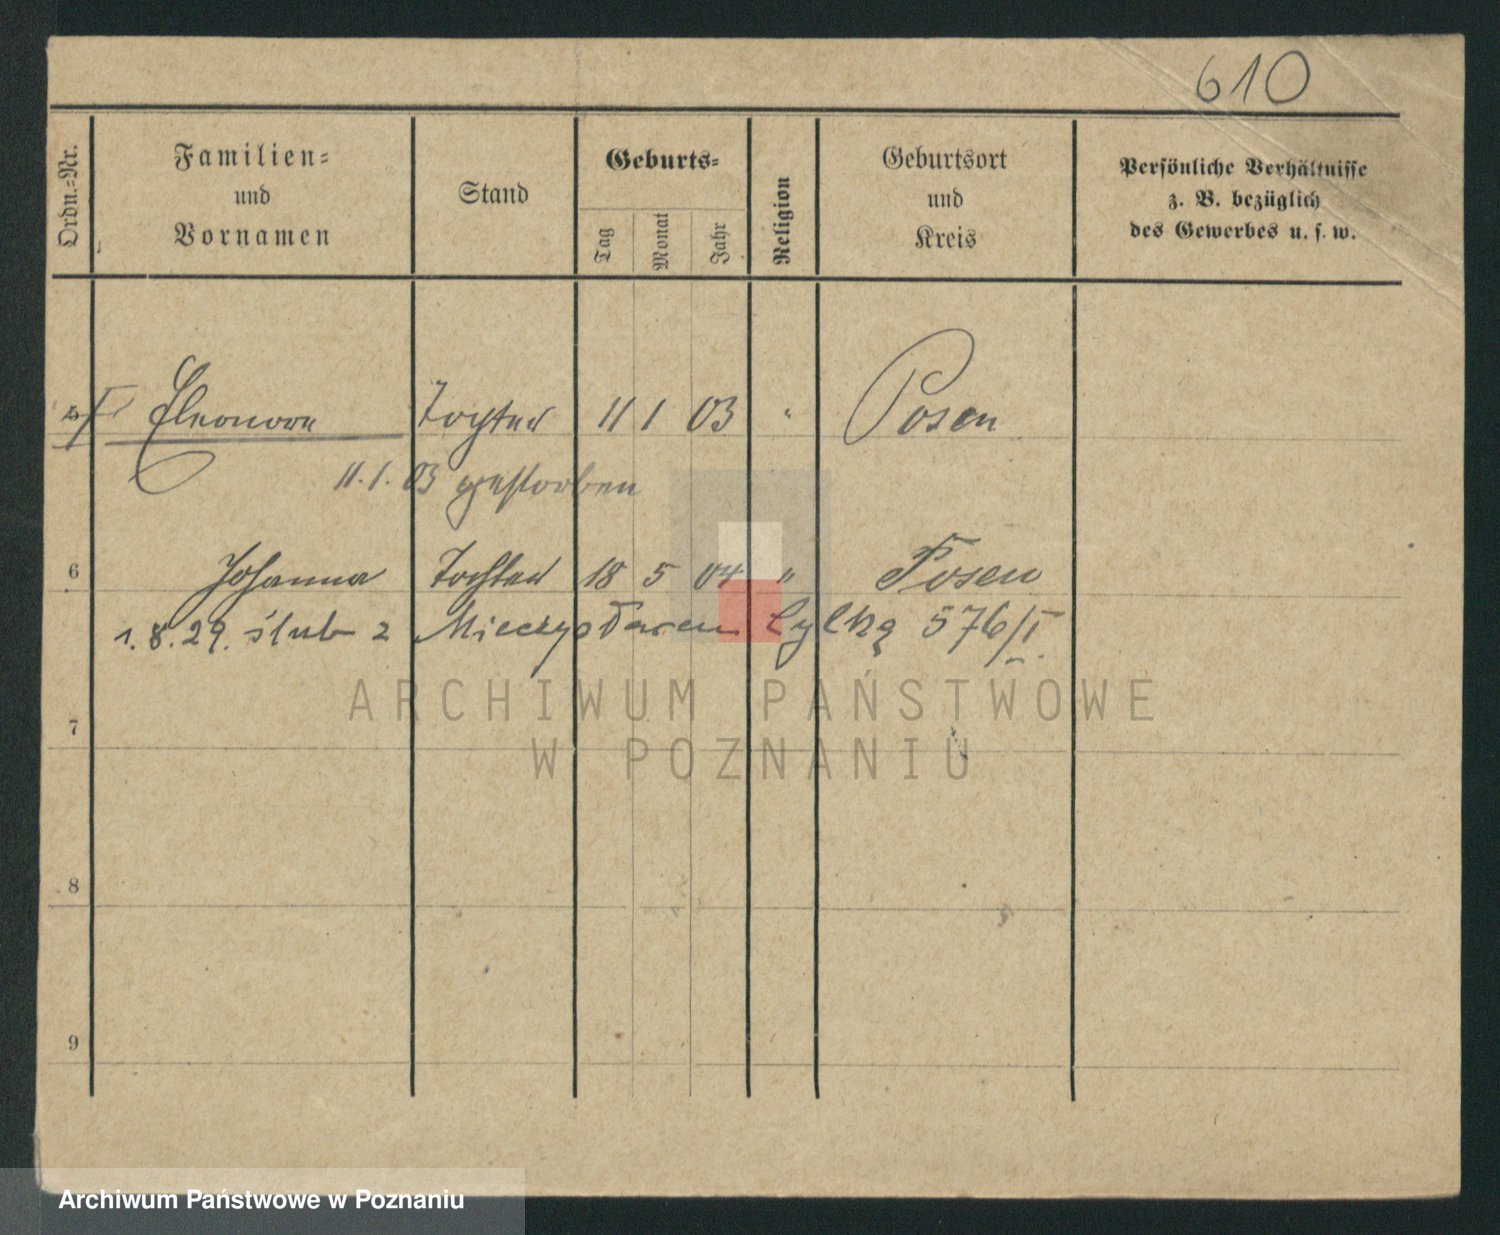 610
Ordn.=Nr.
Familien=
und
Vornamen
Stand
Geburts=
Tag Monat Jahr
Religion
Geburtsort
und
Kreis
Persönliche Verhältnisse
z. B. bezüglich
des Gewerbes u. s. w.
5 Eleonore Tochter 11 1 03 " Posen
11.1.03 gestorben
6 Johanna Tochter 18 5 04 " Posen
1.8.29. ślub z Lylką 576/I
ARCHIWUM PAŃSTWOWE
W POZNANIU
7
8
9
Archiwum Państwowe w Poznaniu